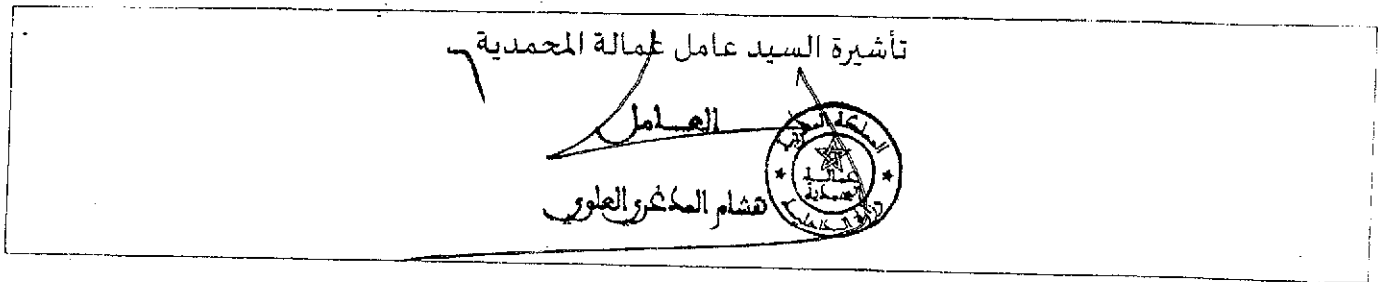 تأشيرة السيد عامل عمالة المحمدية
العامل
هشام المدغري العلوي
المملكة المغربية
عمالة
المحمدية
وزارة الداخلية